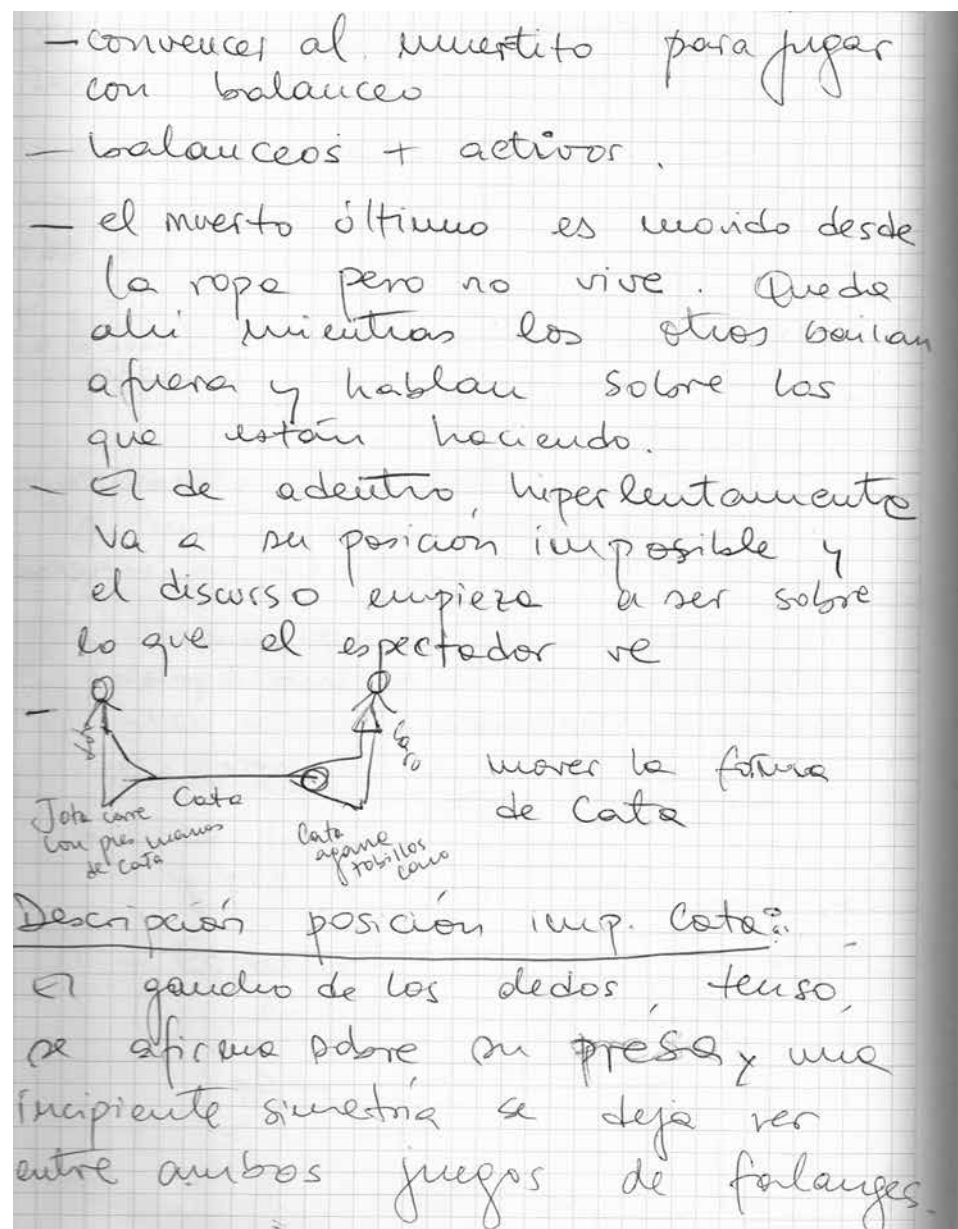 — convencer al muertito para jugar
con balanceo
— balanceos + activos.
— el muerto último es movido desde
la ropa pero no vive. Queda
ahi mientras los otros bailan
afuera y hablan sobre los
que están haciendo.
— El de adentro, hiperlentamente
va a su posición imposible y
el discurso empieza a ser sobre
lo que el espectador ve
—
Caro
Cata
mover la forma
de Cata
Jota corre
con pies manos
de Cata
Cata
agarra
tobillos
Caro
Descripción posición imp. Cata:
El gancho de los dedos, tenso,
se afirma sobre su presa y una
incipiente simetría se deja ver
entre ambos juegos de falanges.